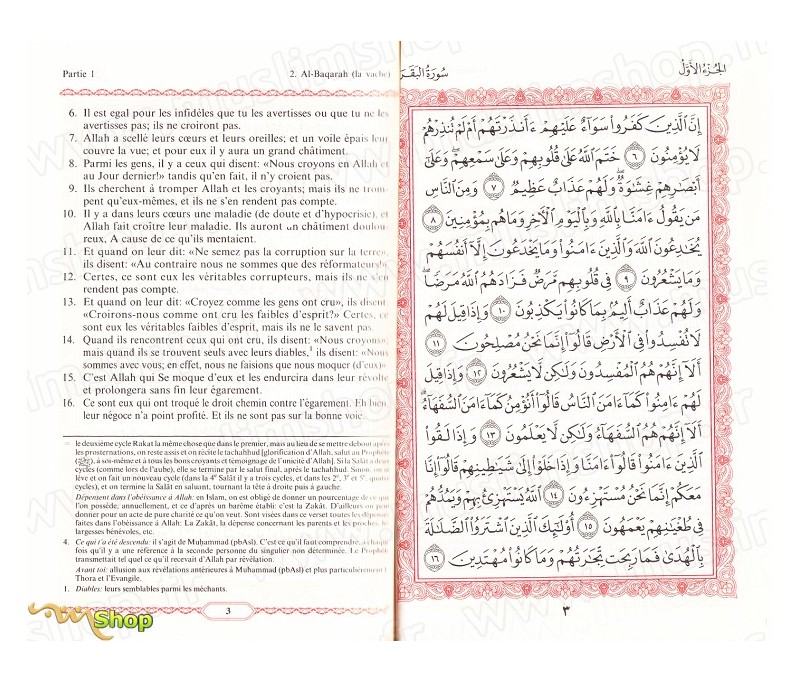 Partie 1
2. Al-Baqarah (la vache)
6. Il est egal pour les infidèles que tu les avertisses ou que tu ne les
avertisses pas; ils ne croiront pas.
7. Allah a scellé leurs cœurs et leurs oreilles; et un voile épais leur
couvre la vue; et pour eux il y aura un grand châtiment.
8. Parmi les gens, il y a ceux qui disent: «Nous croyons en Allah et
au Jour dernier!» tandis qu'en fait, il n'y croient pas.
9. Ils cherchent à tromper Allah et les croyants; mais ils ne trom-
pent qu'eux-mêmes, et ils ne s'en rendent pas compte.
10. Il y a dans leurs cœurs une maladie (de doute et d'hypocrisie), et
Allah fait croître leur maladie. Ils auront un châtiment doulou-
reux, A cause de ce qu'ils mentaient.
11. Et quand on leur dit: «Ne semez pas la corruption sur la terre»,
ils disent: «Au contraire nous ne sommes que des réformateurs!»
12. Certes, ce sont eux les véritables corrupteurs, mais ils ne s'en
rendent pas compte.
13. Et quand on leur dit: «Croyez comme les gens ont cru», ils disent:
«Croirons-nous comme ont cru les faibles d'esprit?» Certes, ce
sont eux les véritables faibles d'esprit, mais ils ne le savent pas.
14. Quand ils rencontrent ceux qui ont cru, ils disent: «Nous croyons»;
mais quand ils se trouvent seuls avec leurs diables,¹ ils disent: «Nous
sommes avec vous; en effet, nous ne faisions que nous moquer (d'eux)».
15. C'est Allah qui Se moque d'eux et les endurcira dans leur révolte
et prolongera sans fin leur égarement.
16. Ce sont eux qui ont troqué le droit chemin contre l'égarement. Eh bien,
leur négoce n'a point profité. Et ils ne sont pas sur la bonne voie.
le deuxième cycle Rakat la même chose que dans le premier, mais au lieu de se mettre debout après
les prosternations, on reste assis et on récite le tachahhud [glorification d'Allah, salut au Prophète
(ﷺ), à soi-même et à tous les bons croyants et témoignage de l'unicité d'Allah]. Si la Salât a deux
cycles (comme lors de l'aube), elle se termine par le salut final, après le tachahhud. Sinon, on se
lève et fait un nouveau cycle (dans la 4e Salât il y a trois cycles, et dans les 2e, 3e et 5e, quatre
cycles), et on termine la Salât en saluant, tournant la tête à droite puis à gauche.
Dépensent dans l'obéissance à Allah: en Islam, on est obligé de donner un pourcentage de ce que
l'on possède, annuellement, et ce d'après un barème établi: c'est la Zakât. D'ailleurs on peut
donner pour un acte de pure charité ce qu'on veut. Sont visées dans ce verset toutes les dépenses
faites dans l'obéissance à Allah: La Zakât, la dépense concernant les parents et les proches, les
largesses bénévoles, etc.
4. Ce qui t'a été descendu: il s'agit de Muḥammad (pbAsl). C'est ce qu'il faut comprendre, à chaque
fois qu'il y a une référence à la seconde personne du singulier non déterminée. Le Prophète
transmettait tel quel ce qu'il recevait d'Allah par révélation.
Avant toi: allusion aux révélations antérieures à Muḥammad (pbAsl) et plus particulièrement la
Thora et l'Evangile.
1. Diables: leurs semblables parmi les méchants.
3
Shop
الجزء الأول
سورة البقرة
إِنَّ ٱلَّذِينَ كَفَرُوا۟ سَوَآءٌ عَلَيْهِمْ ءَأَنذَرْتَهُمْ أَمْ لَمْ تُنذِرْهُمْ
لَا يُؤْمِنُونَ ٦ خَتَمَ ٱللَّهُ عَلَىٰ قُلُوبِهِمْ وَعَلَىٰ سَمْعِهِمْ وَعَلَىٰٓ
أَبْصَٰرِهِمْ غِشَٰوَةٌ وَلَهُمْ عَذَابٌ عَظِيمٌ ٧ وَمِنَ ٱلنَّاسِ
مَن يَقُولُ ءَامَنَّا بِٱللَّهِ وَبِٱلْيَوْمِ ٱلْءَاخِرِ وَمَا هُم بِمُؤْمِنِينَ ٨
يُخَٰدِعُونَ ٱللَّهَ وَٱلَّذِينَ ءَامَنُوا۟ وَمَا يَخْدَعُونَ إِلَّآ أَنفُسَهُمْ
وَمَا يَشْعُرُونَ ٩ فِى قُلُوبِهِم مَّرَضٌ فَزَادَهُمُ ٱللَّهُ مَرَضًا
وَلَهُمْ عَذَابٌ أَلِيمٌۢ بِمَا كَانُوا۟ يَكْذِبُونَ ١٠ وَإِذَا قِيلَ لَهُمْ
لَا تُفْسِدُوا۟ فِى ٱلْأَرْضِ قَالُوٓا۟ إِنَّمَا نَحْنُ مُصْلِحُونَ ١١
أَلَآ إِنَّهُمْ هُمُ ٱلْمُفْسِدُونَ وَلَٰكِن لَّا يَشْعُرُونَ ١٢ وَإِذَا قِيلَ
لَهُمْ ءَامِنُوا۟ كَمَآ ءَامَنَ ٱلنَّاسُ قَالُوٓا۟ أَنُؤْمِنُ كَمَآ ءَامَنَ ٱلسُّفَهَآءُ
أَلَآ إِنَّهُمْ هُمُ ٱلسُّفَهَآءُ وَلَٰكِن لَّا يَعْلَمُونَ ١٣ وَإِذَا لَقُوا۟
ٱلَّذِينَ ءَامَنُوا۟ قَالُوٓا۟ ءَامَنَّا وَإِذَا خَلَوْا۟ إِلَىٰ شَيَٰطِينِهِمْ قَالُوٓا۟ إِنَّا
مَعَكُمْ إِنَّمَا نَحْنُ مُسْتَهْزِءُونَ ١٤ ٱللَّهُ يَسْتَهْزِئُ بِهِمْ وَيَمُدُّهُمْ
فِى طُغْيَٰنِهِمْ يَعْمَهُونَ ١٥ أُو۟لَٰٓئِكَ ٱلَّذِينَ ٱشْتَرَوُا۟ ٱلضَّلَٰلَةَ
بِٱلْهُدَىٰ فَمَا رَبِحَت تِّجَٰرَتُهُمْ وَمَا كَانُوا۟ مُهْتَدِينَ ١٦
٣